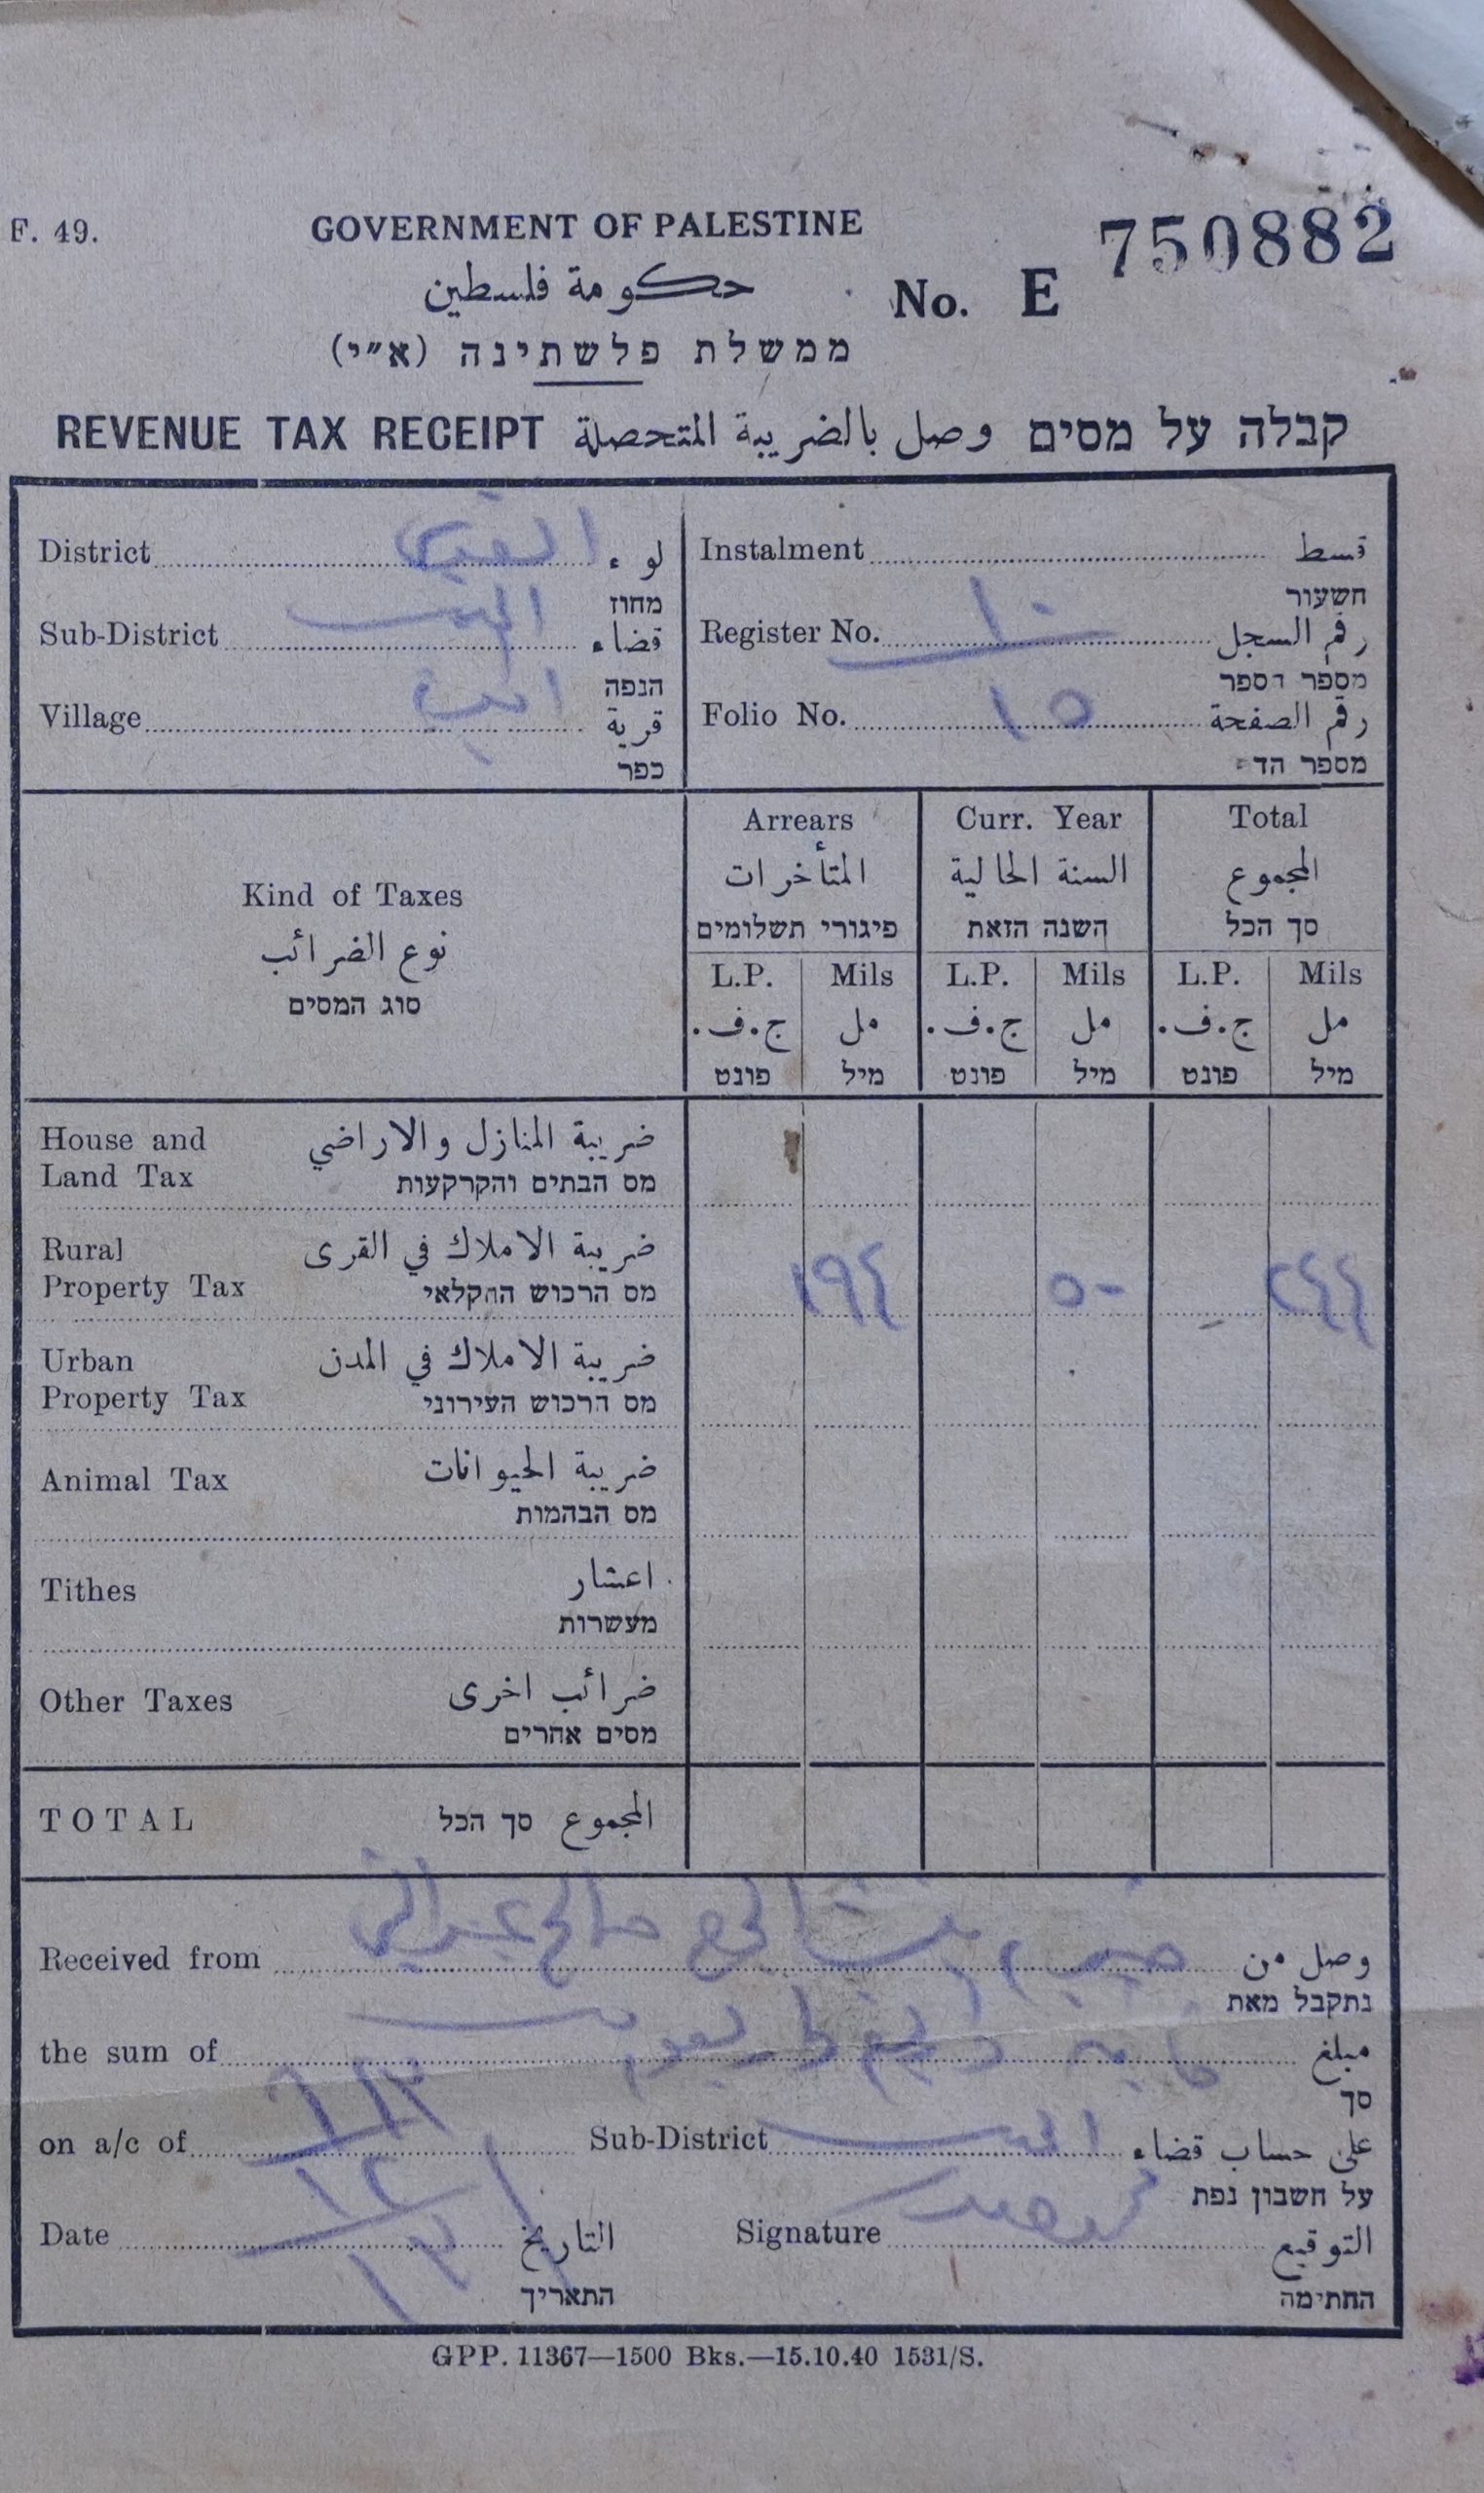 F. 49.
GOVERNMENT OF PALESTINE
حكومة فلسطين
ממשלת פלשתינה (א״י)
No. E 750882
REVENUE TAX RECEIPT وصل بالضريبة المتحصلة קבלה על מסים
District لواء
מחוז
Sub-District قضاء
הנפה
Village قرية
כפר
Instalment قسط
השעור
Register No. ١٠ رقم السجل
מספר הספר
Folio No. ١٥ رقم الصفحة
מספר הד
Kind of Taxes
نوع الضرائب
סוג המסים
Arrears Curr. Year Total
المتأخرات السنة الحالية المجموع
פיגורי תשלומים השנה הזאת סך הכל
L.P. Mils L.P. Mils L.P. Mils
ج.ف. مل ج.ف. مل ج.ف. مل
פונט מיל פונט מיל פונט מיל
House and Land Tax ضريبة المنازل والاراضي
מס הבתים והקרקעות
Rural Property Tax ضريبة الاملاك في القرى
מס הרכוש החקלאי
١٩٤ ٥٠ ٢٤٤
Urban Property Tax ضريبة الاملاك في المدن
מס הרכוש העירוני
Animal Tax ضريبة الحيوانات
מס הבהמות
Tithes اعشار
מעשרות
Other Taxes ضرائب اخرى
מסים אחרים
TOTAL المجموع סך הכל
Received from بنت الحج صالح وصل من
נתקבל מאת
the sum of مبلغ
סך
on a/c of Sub-District على حساب قضاء
על חשבון נפת
Date التاريخ Signature التوقيع
התאריך החתימה
GPP. 11367—1500 Bks.—15.10.40 1531/S.